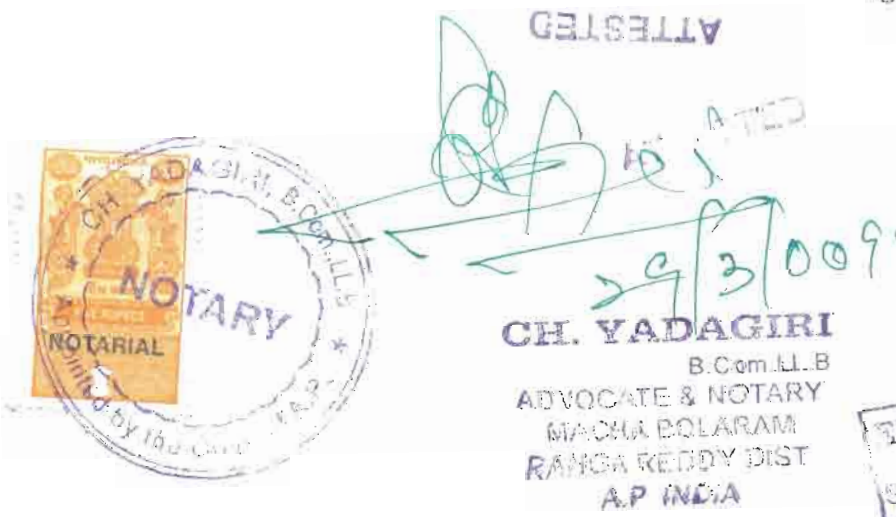 ATTESTED
CH. YADAGIRI, B.Com.,LLB
NOTARY
NOTARIAL
Appointed by the
29/3/
CH. YADAGIRI
B.Com.LL.B
ADVOCATE & NOTARY
MACHA BOLARAM
RANGA REDDY DIST
A.P INDIA